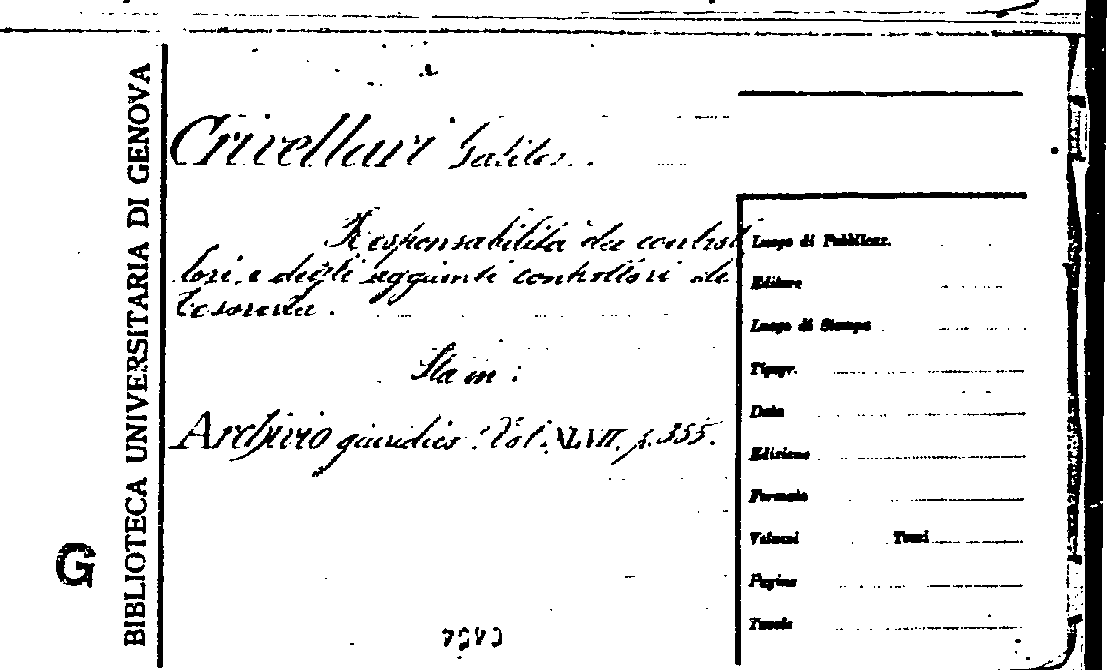 BIBLIOTECA UNIVERSITARIA DI GENOVA
G
Crivellari Galileo.
Responsabilità dei control
lori e degli aggiunti controllori de
tesoreria.
Sta in:
Archivio giuridico. Vol. XLVII. p. 355.
Luogo di Pubblicaz.
Editore
Luogo di Stampa
Tipogr.
Data
Edizione
Formato
Volumi Tomi
Pagine
Tavole